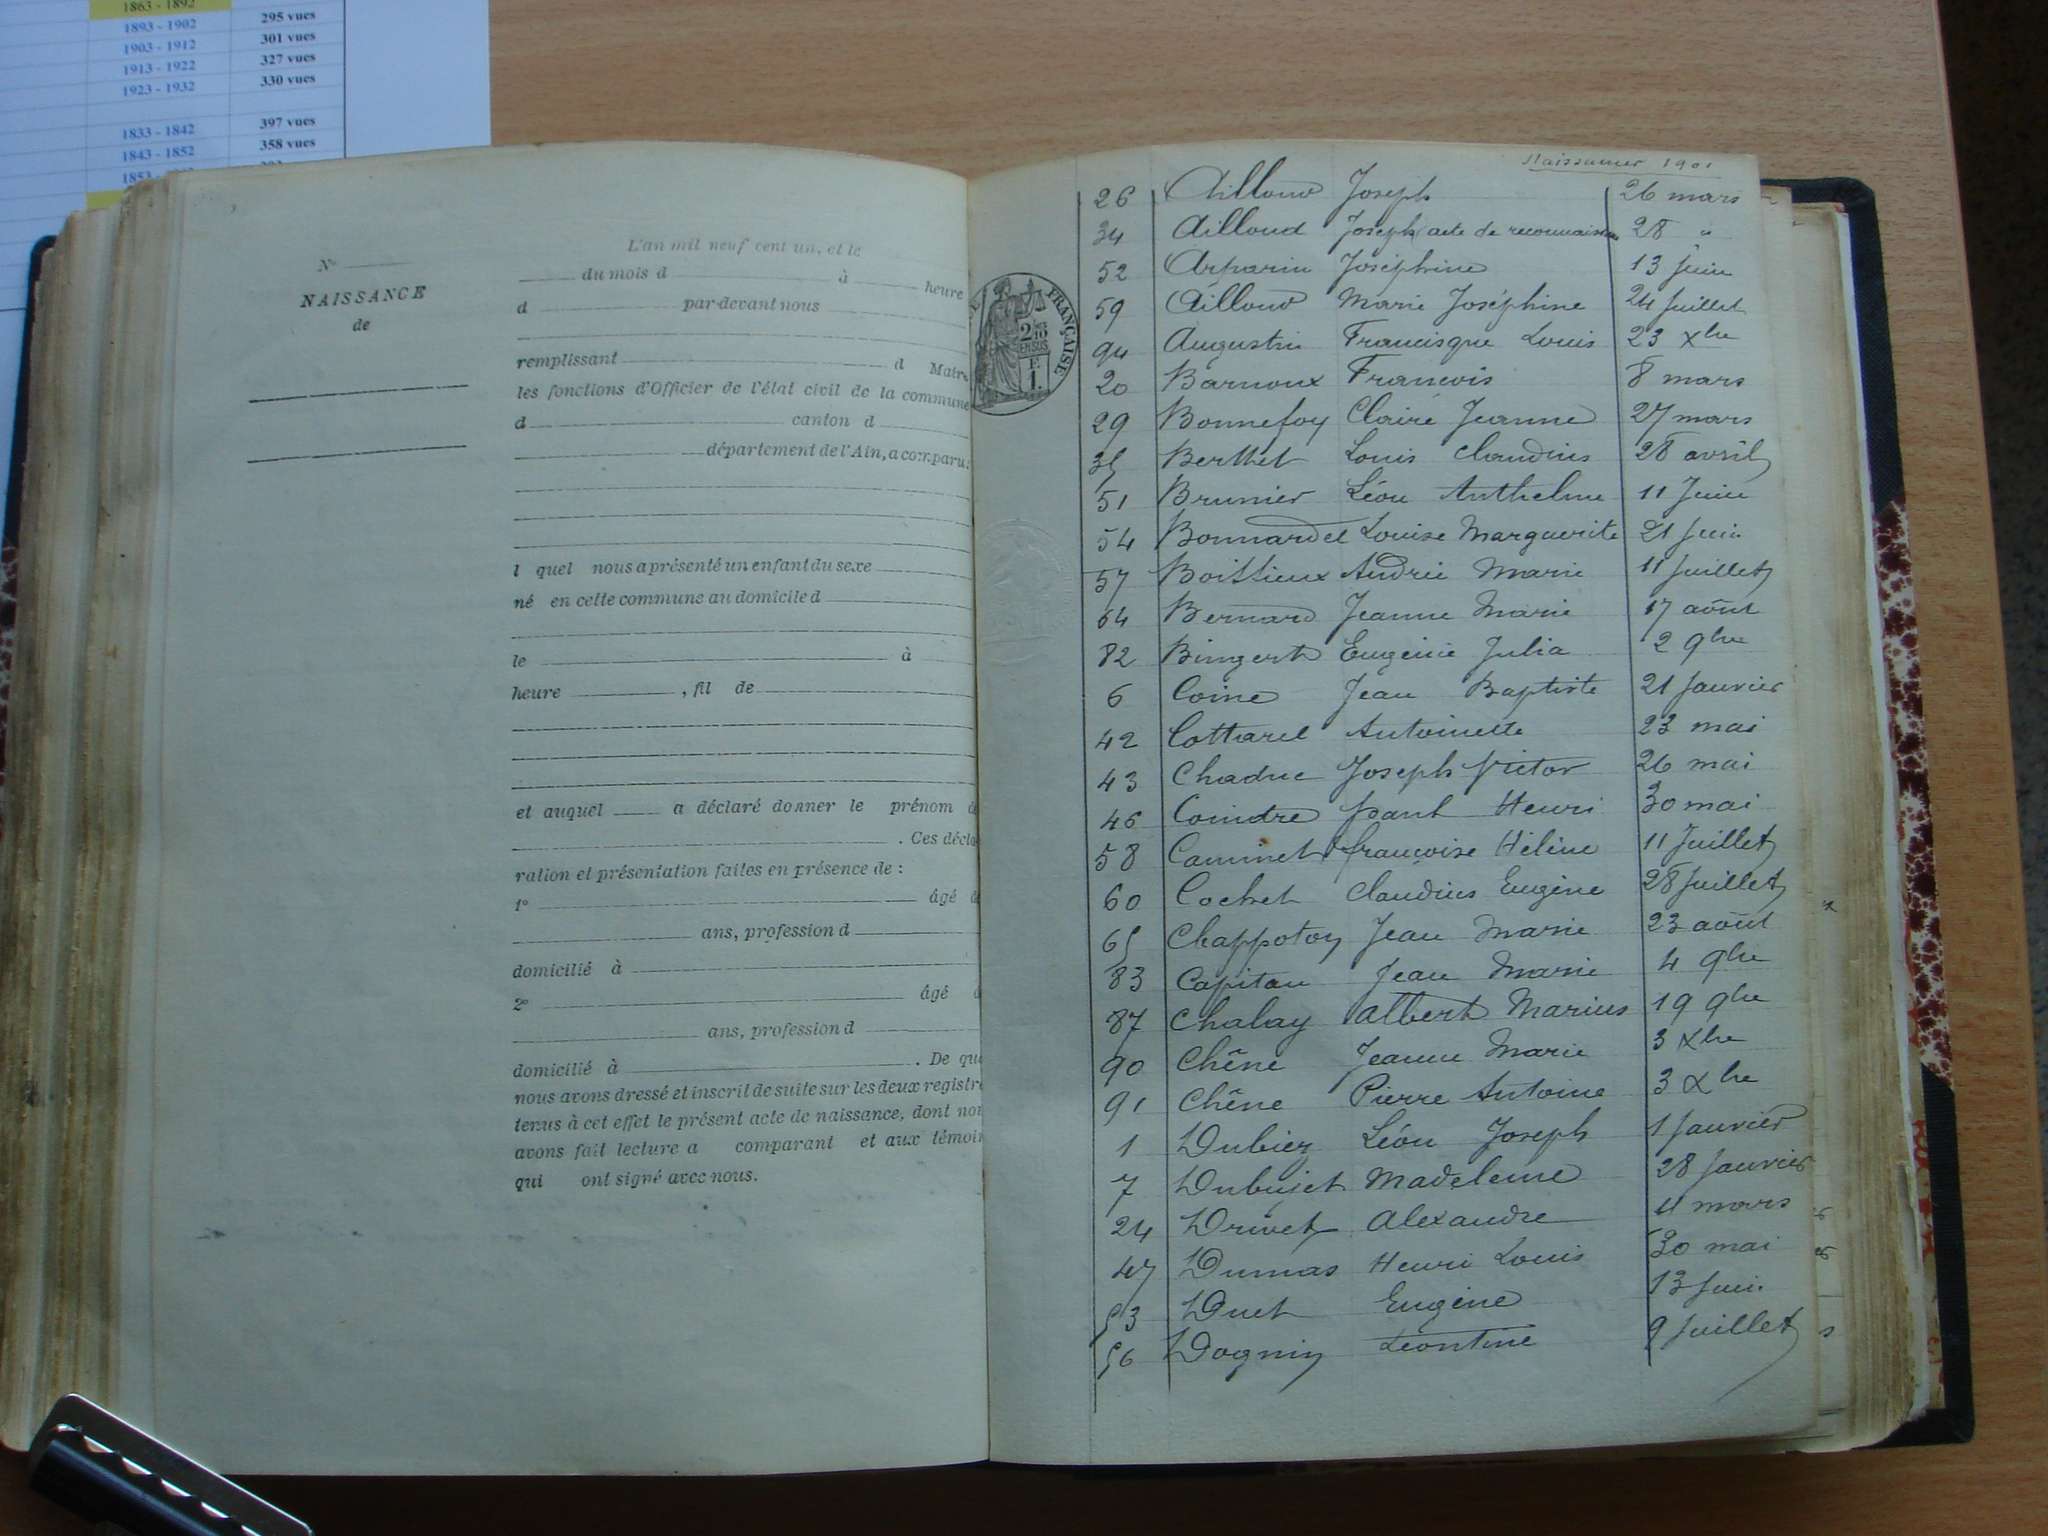 1863 - 1892
1893 - 1902 295 vues
1903 - 1912 301 vues
1913 - 1922 327 vues
1923 - 1932 330 vues
1833 - 1842 397 vues
1843 - 1852 358 vues
N°
NAISSANCE
de
L'an mil neuf cent un, et le
du mois d à heure
d par-devant nous
remplissant d Maire
les fonctions d'Officier de l'état civil de la commune
d canton d
département de l'Ain, a comparu:
l quel nous a présenté un enfant du sexe
né en cette commune au domicile d
le à
heure , fil de
et auquel a déclaré donner le prénom d
. Ces décla
ration et présentation faites en présence de :
1° âgé d
ans, profession d
domicilié à
2° âgé d
ans, profession d
domicilié à . De quo
nous avons dressé et inscrit de suite sur les deux registre
tenus à cet effet le présent acte de naissance, dont nou
avons fait lecture a comparant et aux témoin
qui ont signé avec nous.
FRANÇAISE
Naissances 1901
26 Ailloud Joseph 26 mars
34 Ailloud Joseph (acte de reconnaissance 28 "
52 Arparin Joséphine 13 Juin
59 Ailloud Marie Joséphine 24 Juillet
94 Augustin Francisque Louis 23 Xbre
20 Barnoux François 8 mars
29 Bonnefoy Claire Jeanne 27 mars
35 Berthet Louis Claudius 28 avril
51 Brunier Léon Anthelme 11 Juin
54 Bonnardel Louise Marguerite 21 Juin
57 Boissieux Andrée Marie 11 Juillet
64 Bernard Jeanne Marie 17 août
82 Bingert Eugénie Julia 2 9bre
6 Coine Jean Baptiste 21 Janvier
42 Cottarel Antoinette 23 mai
43 Chaduc Joseph Victor 26 mai
46 Coindre Paul Henri 30 mai
58 Caminet Françoise Hélène 11 Juillet
60 Cochet Claudius Eugène 28 Juillet
65 Chappotoy Jean Marie 23 août
83 Capitan Jean Marie 4 9bre
87 Chalay Albert Marius 19 9bre
90 Chêne Jeanne Marie 3 Xbre
91 Chêne Pierre Antoine 3 Xbre
1 Dubiez Léon Joseph 1 Janvier
7 Dubujet Madeleine 28 Janvier
24 Drivet Alexandre 11 mars
47 Dumas Henri Louis 30 mai
53 Duet Eugène 13 Juin
56 Dognin Léontine 9 Juillet